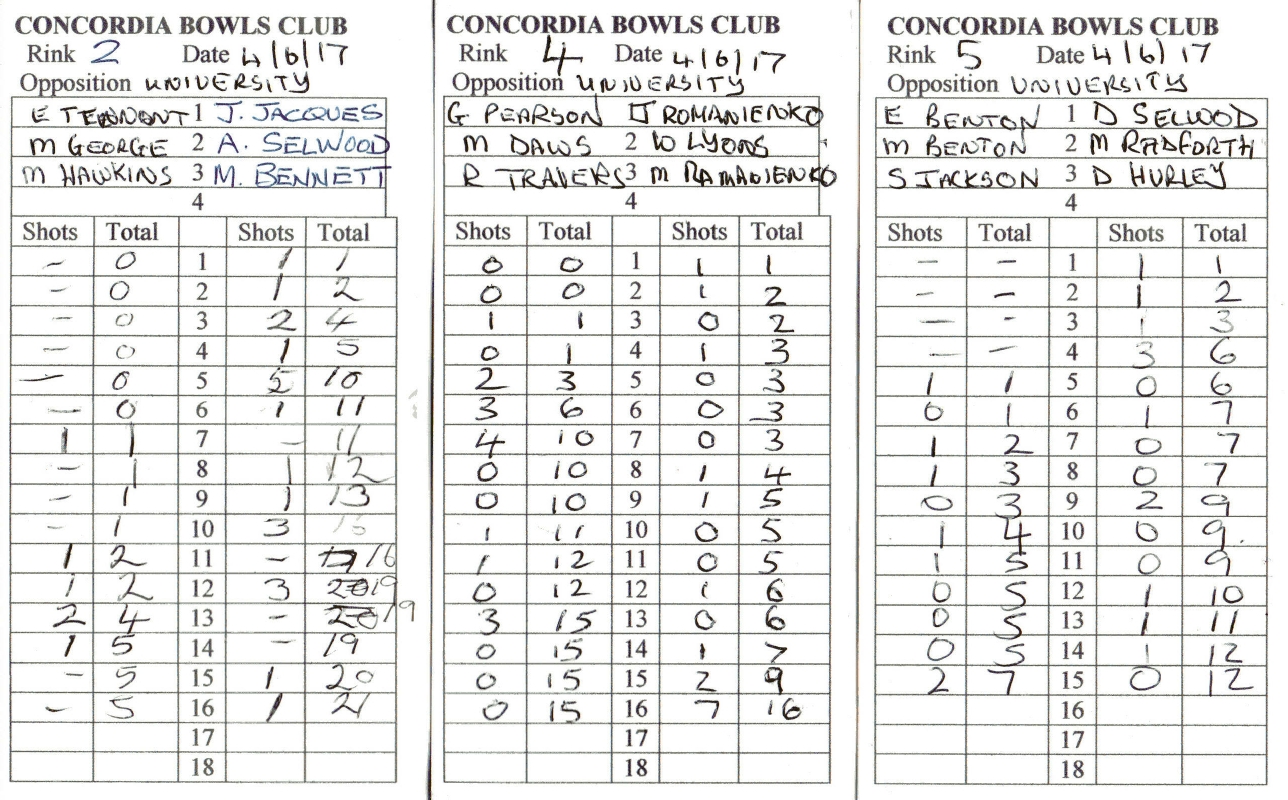 CONCORDIA BOWLS CLUB
Rink 2 Date 4/6/17
Opposition UNIVERSITY
E TENNONT 1 J. JACQUES
M GEORGE 2 A. SELWOOD
M HAWKINS 3 M. BENNETT
4
Shots Total Shots Total
- 0 1 1 1
- 0 2 1 2
- 0 3 2 4
- 0 4 1 5
- 0 5 5 10
- 0 6 1 11
1 1 7 - 11
- 1 8 1 12
- 1 9 1 13
- 1 10 3 16
1 2 11 - 16
1 2 12 3 19
2 4 13 - 19
1 5 14 - 19
- 5 15 1 20
- 5 16 1 21
17
18
CONCORDIA BOWLS CLUB
Rink 4 Date 4/6/17
Opposition UNIVERSITY
G PEARSON J ROMANIENKO
M DAWS 2 W LYONS
R TRAVERS 3 M RAMANIENKO
4
Shots Total Shots Total
0 0 1 1 1
0 0 2 1 2
1 1 3 0 2
0 1 4 1 3
2 3 5 0 3
3 6 6 0 3
4 10 7 0 3
0 10 8 1 4
0 10 9 1 5
1 11 10 0 5
1 12 11 0 5
0 12 12 1 6
3 15 13 0 6
0 15 14 1 7
0 15 15 2 9
0 15 16 7 16
17
18
CONCORDIA BOWLS CLUB
Rink 5 Date 4/6/17
Opposition UNIVERSITY
E BENTON 1 D SELWOD
M BENTON 2 M RADFORTH
S JACKSON 3 D HURLEY
4
Shots Total Shots Total
- - 1 1 1
- - 2 1 2
- - 3 1 3
- - 4 3 6
1 1 5 0 6
0 1 6 1 7
1 2 7 0 7
1 3 8 0 7
0 3 9 2 9
1 4 10 0 9.
1 5 11 0 9
0 5 12 1 10
0 5 13 1 11
0 5 14 1 12
2 7 15 0 12
16
17
18